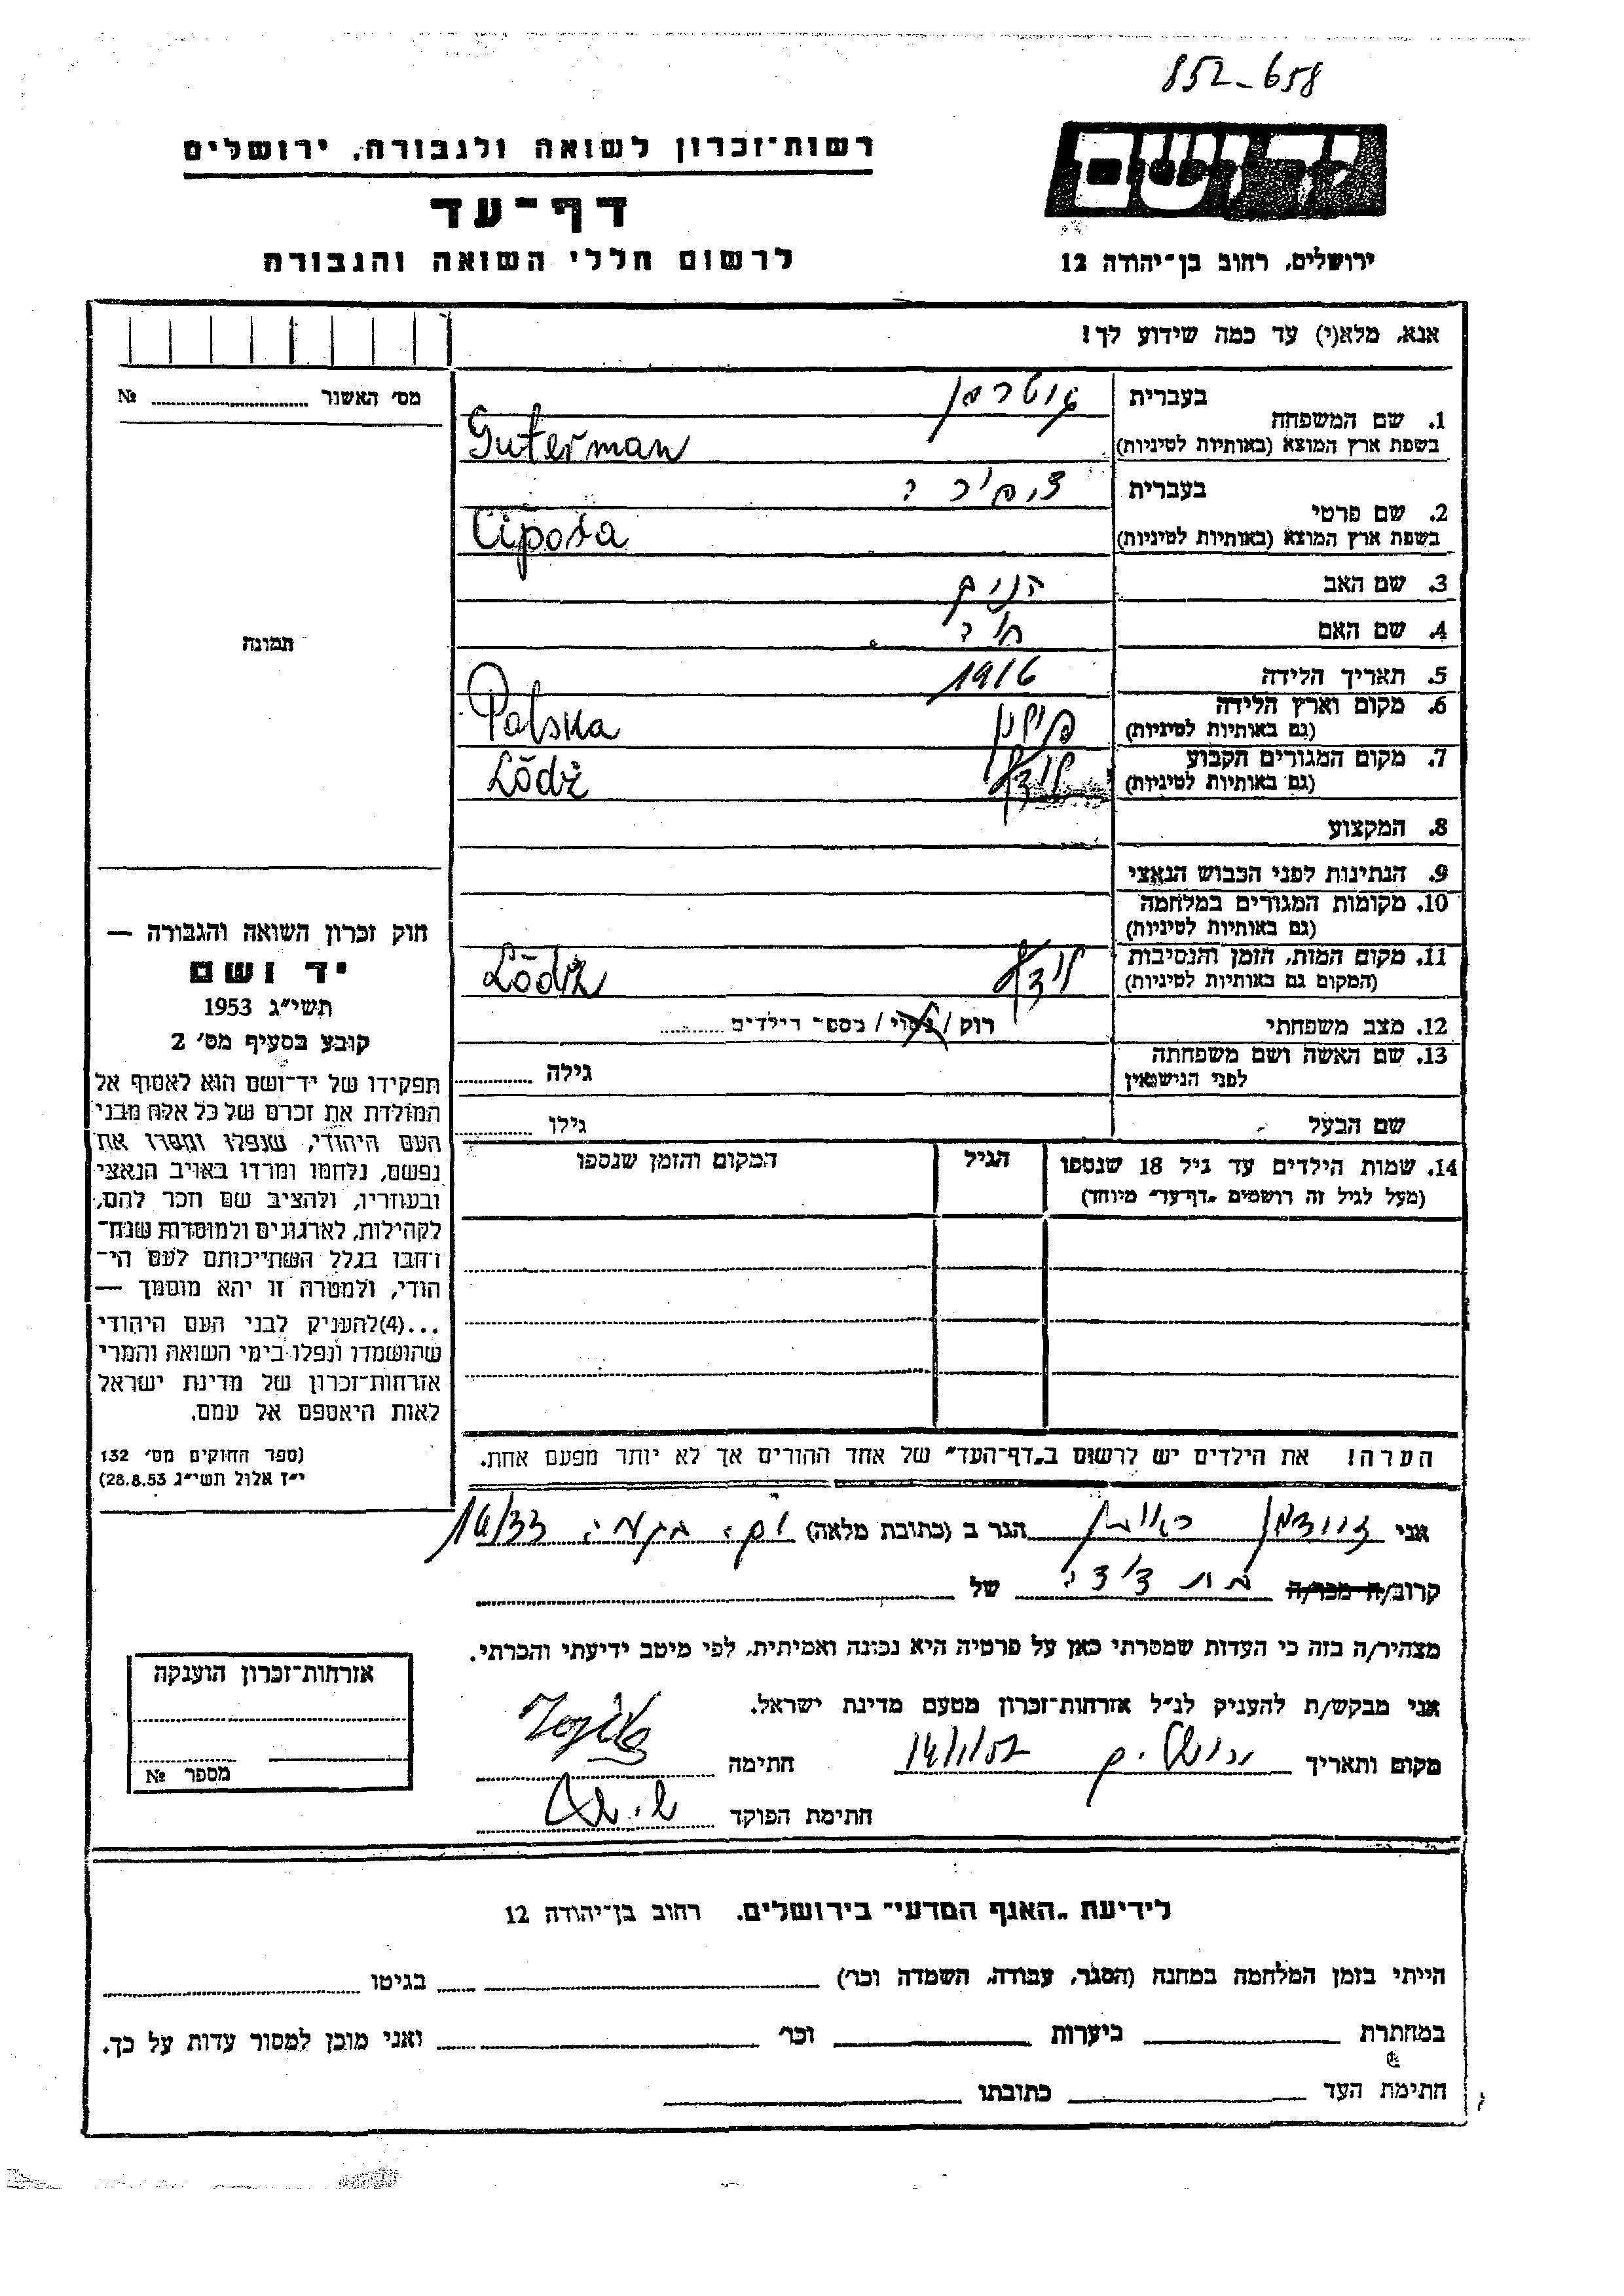 852-658
רשות־זכרון לשואה ולגבורה, ירושלים
דף־עד
לרשום חללי השואה והגבורה
יד ושם
ירושלים, רחוב בן־יהודה 12
אנא, מלא(י) עד כמה שידוע לך!
מס׳ האשור № 
1. שם המשפחה בעברית גוטרמן
בשפת ארץ המוצא (באותיות לטיניות) Guterman
2. שם פרטי בעברית
בשפת ארץ המוצא (באותיות לטיניות) Cipora
3. שם האב
4. שם האם חיה
5. תאריך הלידה 1916
6. מקום וארץ הלידה
(גם באותיות לטיניות) פולין Polska
7. מקום המגורים הקבוע
(גם באותיות לטיניות) לודז׳ Łódź
8. המקצוע
9. הנתינות לפני הכבוש הנאצי
10. מקומות המגורים במלחמה
(גם באותיות לטיניות)
11. מקום המות, הזמן והנסיבות
(המקום גם באותיות לטיניות) לודז׳ Łódź
12. מצב משפחתי רוק / נשוי / מספר הילדים
13. שם האשה ושם משפחתה
לפני הנישואין גילה
שם הבעל גילו
14. שמות הילדים עד גיל 18 שנספו הגיל המקום והזמן שנספו
(מעל לגיל זה רושמים „דף־עד״ מיוחד)
הערה! את הילדים יש לרשום ב„דף־העד״ של אחד ההורים אך לא יותר מפעם אחת.
תמונה
חוק זכרון השואה והגבורה —
יד ושם
תשי״ג 1953
קובע בסעיף מס׳ 2
תפקידו של יד־ושם הוא לאסוף אל
המולדת את זכרם של כל אלה מבני
העם היהודי, שנפלו ומסרו את
נפשם, נלחמו ומרדו באויב הנאצי
ובעוזריו, ולהציב שם וזכר להם,
לקהילות, לארגונים ולמוסדות שנח־
רבו בגלל השתייכותם לעם הי־
הודי, ולמטרה זו יהא מוסמך —
...(4)להעניק לבני העם היהודי
שהושמדו ונפלו בימי השואה והמרי
אזרחות־זכרון של מדינת ישראל
לאות היאספם אל עמם.
(ספר החוקים מס׳ 132
י״ז אלול תשי״ג 28.8.53)
אני ראובן הגר ב (כתובת מלאה) 16/33
קרוב/ה מכר/ה של
מצהיר/ה בזה כי העדות שמסרתי כאן על פרטיה היא נכונה ואמיתית, לפי מיטב ידיעתי והכרתי.
אני מבקש/ת להעניק לנ״ל אזרחות־זכרון מטעם מדינת ישראל.
מקום ותאריך ירושלים חתימה
חתימת הפוקד
אזרחות־זכרון הוענקה
מספר №
לידיעת „האגף המדעי״ בירושלים, רחוב בן־יהודה 12
הייתי בזמן המלחמה במחנה (הסגר, עבודה, השמדה וכו׳) בגיטו
במחתרת ביערות וכו׳ ואני מוכן למסור עדות על כך.
חתימת העד כתובתו